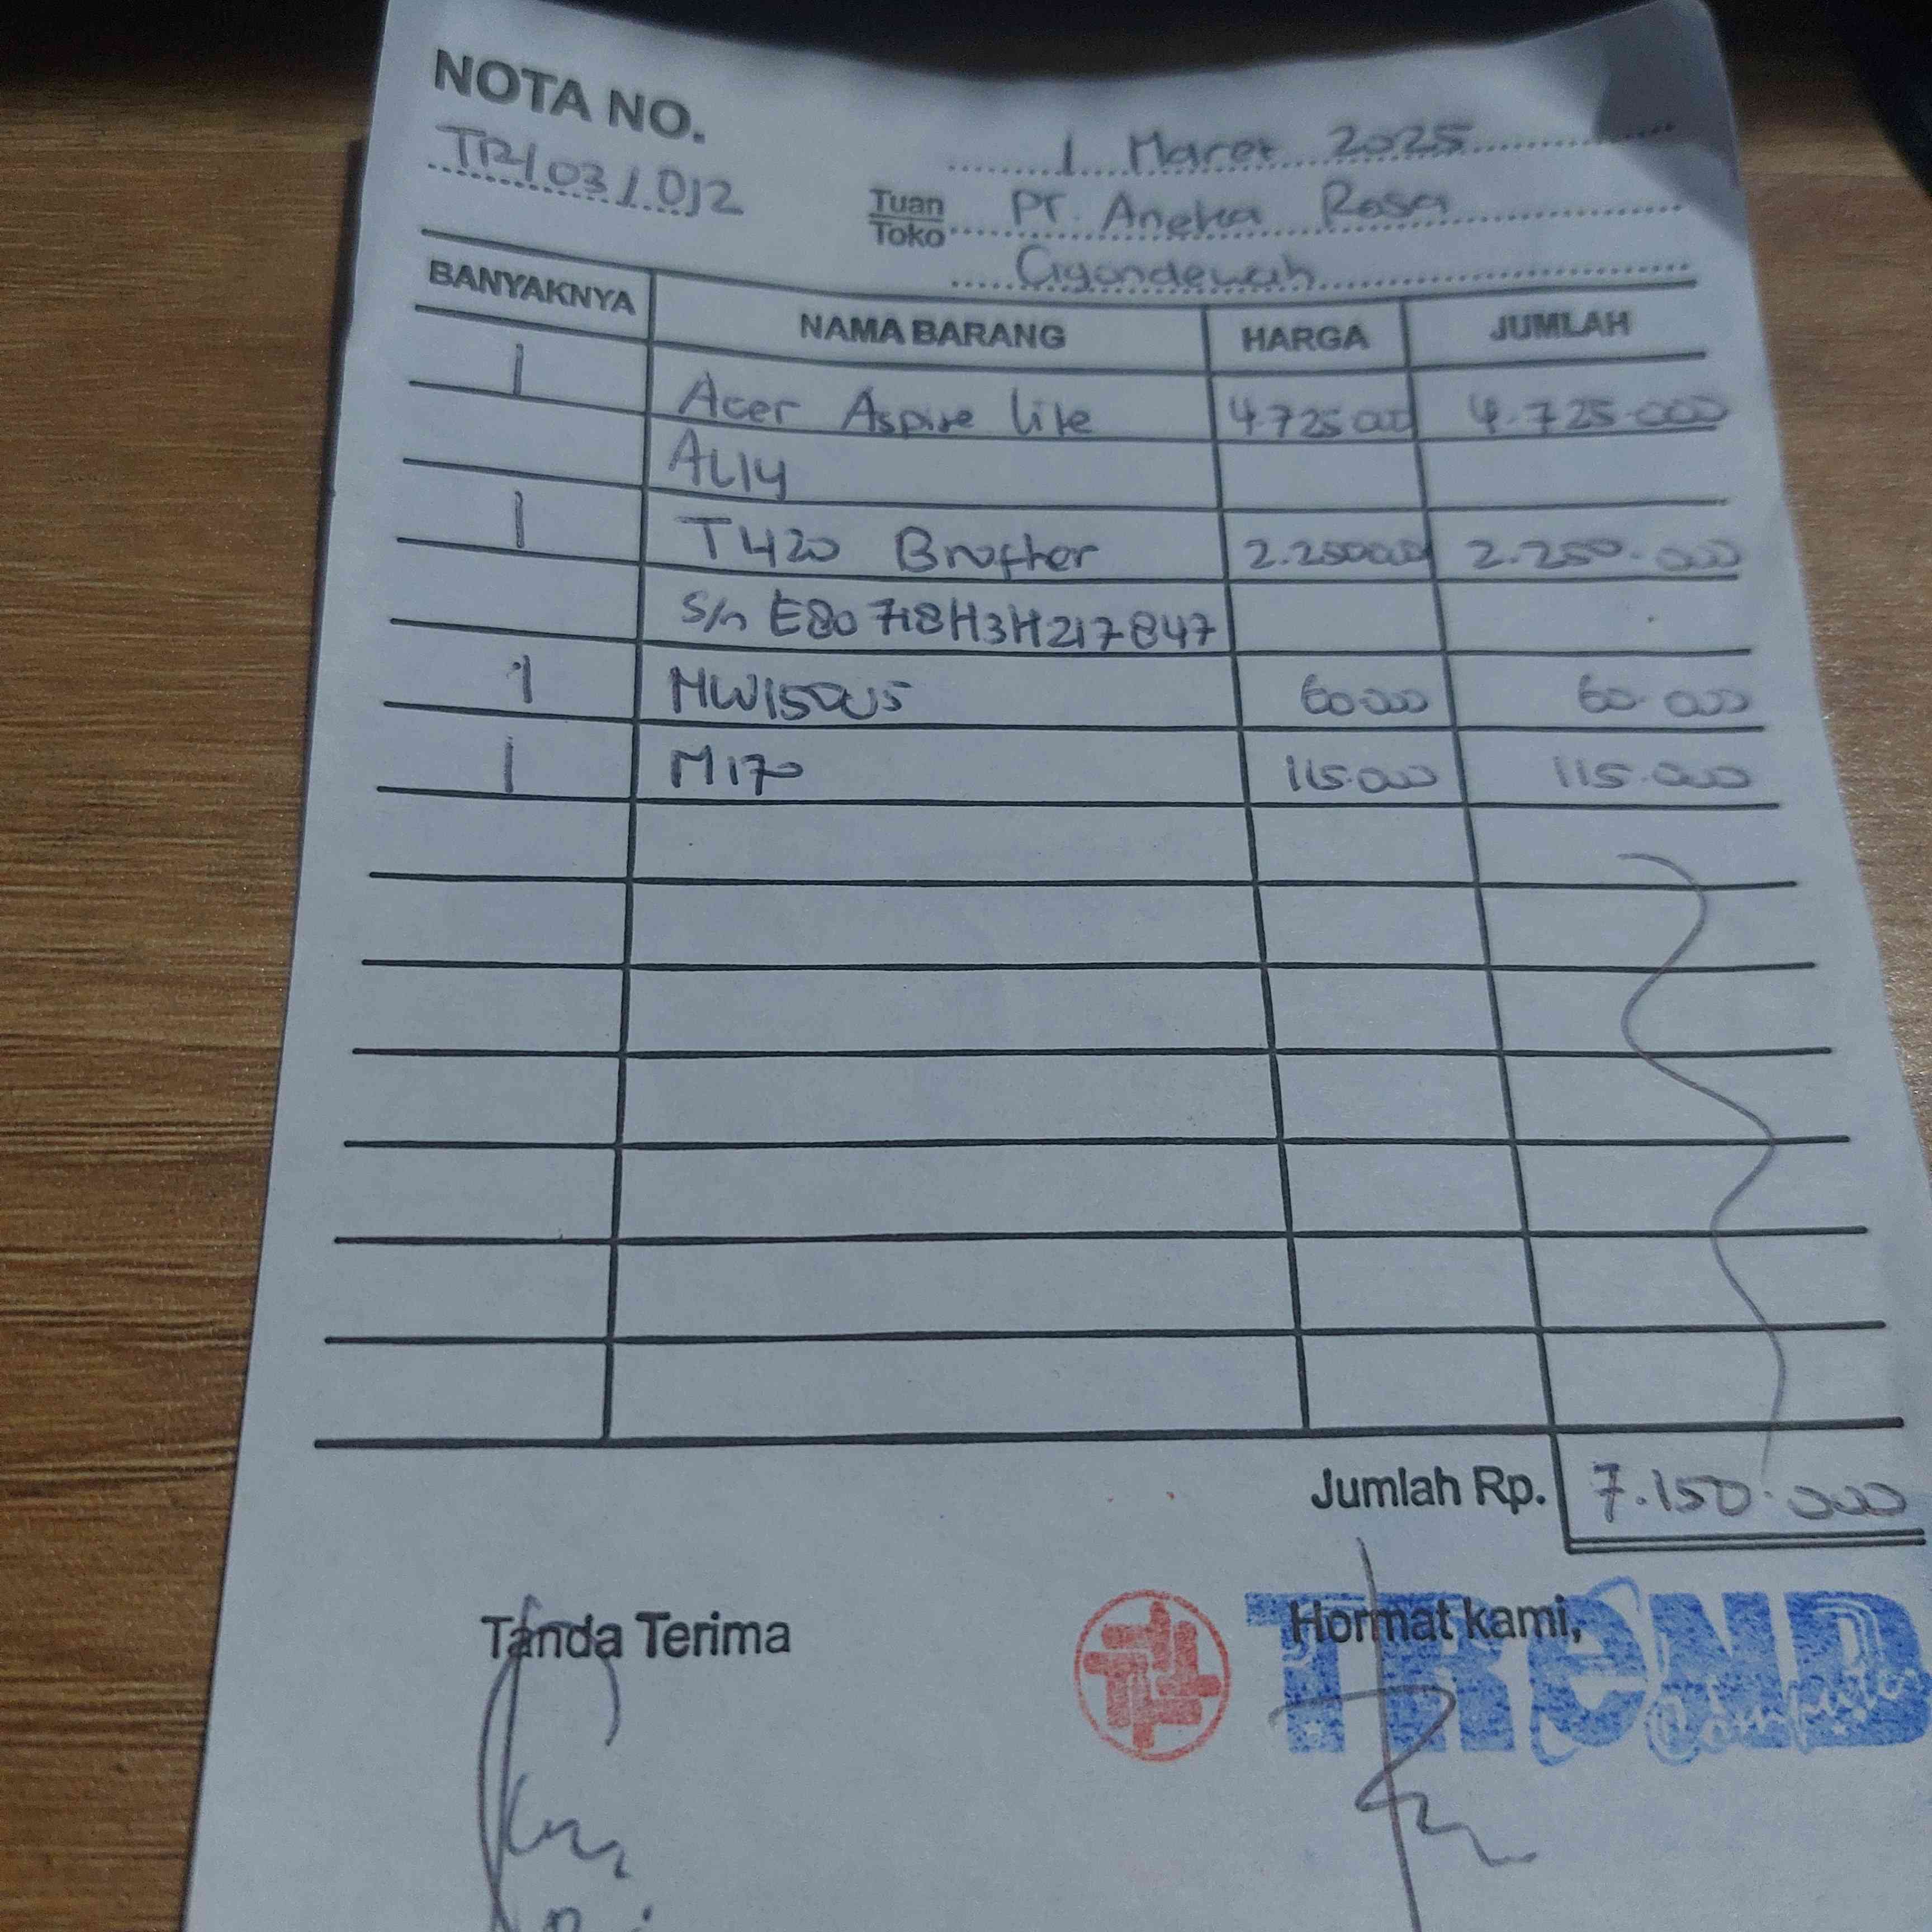 NOTA NO.
TR/03/012
1 Maret 2025
Tuan
Toko
PT. Aneka Rasa
Cigondewah
BANYAKNYA NAMA BARANG HARGA JUMLAH
1 Acer Aspire lite 4.725.000 4.725.000
AL14
1 T420 Brother 2.250.000 2.250.000
S/n E80718H3H217847
1 MW150US 60.000 60.000
1 M170 115.000 115.000
Jumlah Rp. 7.150.000
Tanda Terima Hormat kami,
TReND
Computer